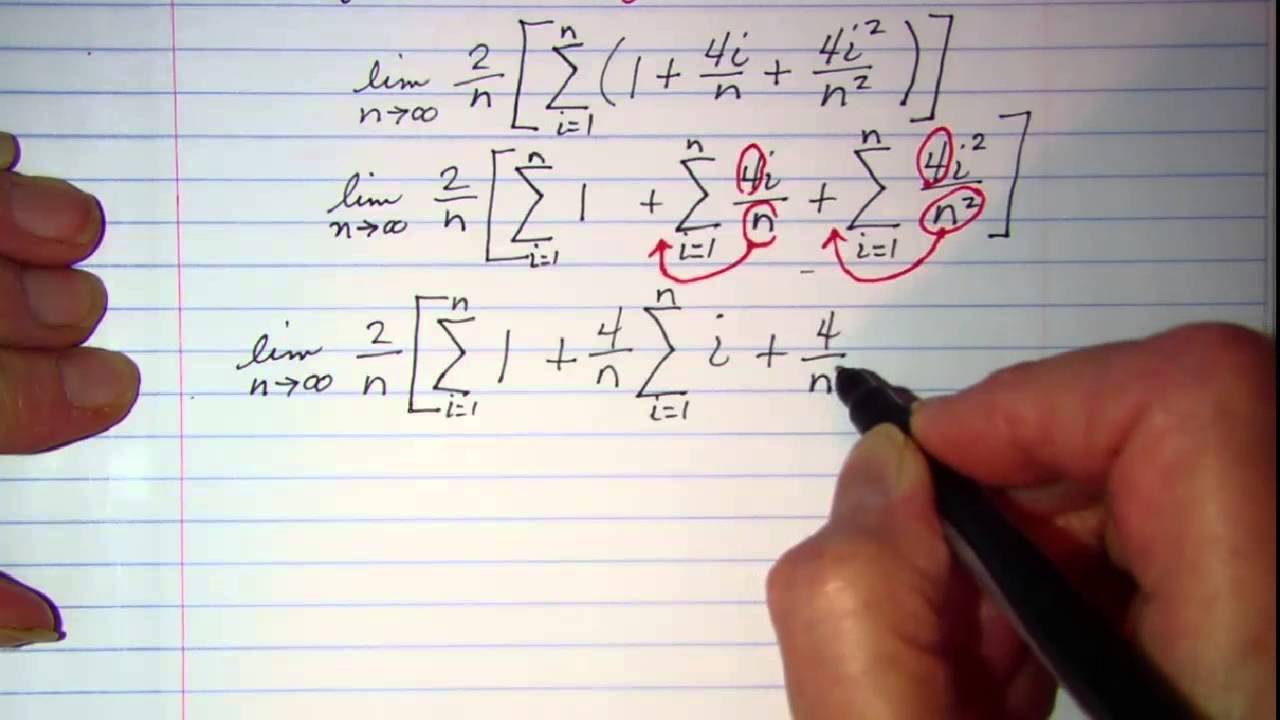 lim n→∞ 2/n [ n ∑ i=1 ( 1 + 4i/n + 4i²/n² ) ]
lim n→∞ 2/n [ n ∑ i=1 1 + n ∑ i=1 4i/n + n ∑ i=1 4i²/n² ]
lim n→∞ 2/n [ n ∑ i=1 1 + 4/n n ∑ i=1 i + 4/n